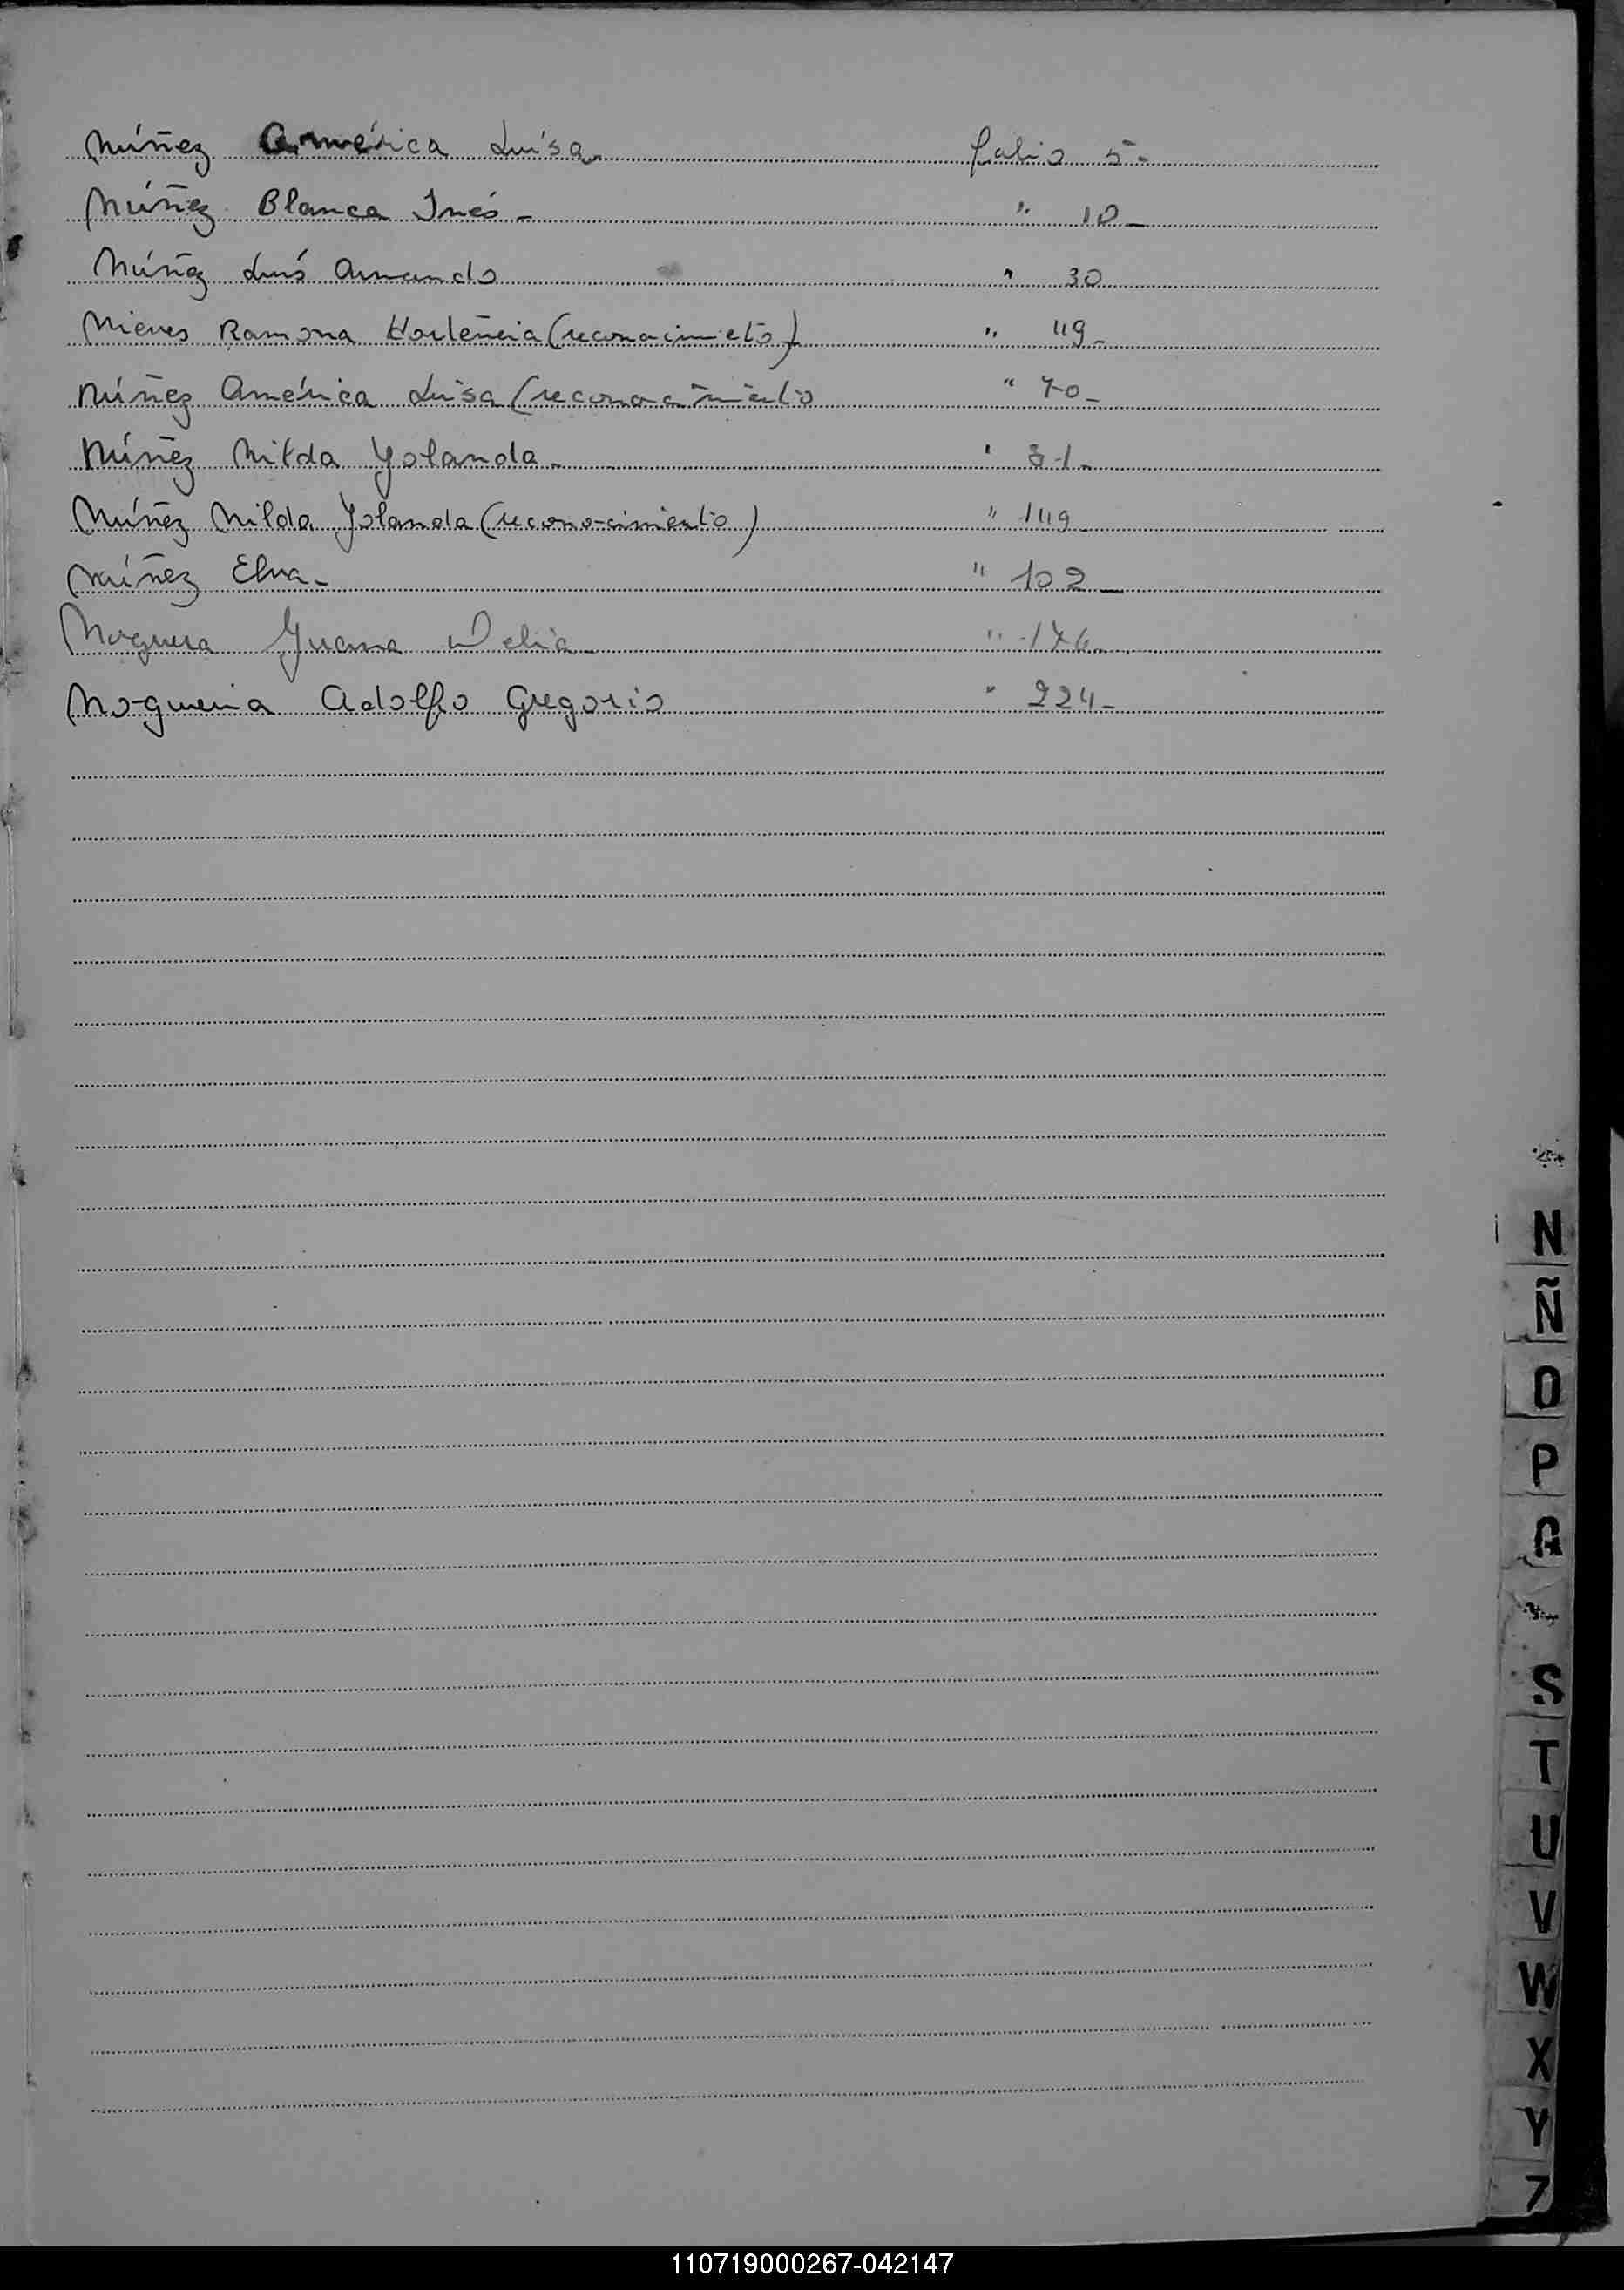 Núñez América Luísa. folio 5-
Núñez Blanca Inés - " 10 -
Núñez Luís Armando " 30
Nieves Ramona Hortencia (reconocimieto) " 49 -
Núñez América Luisa (reconocimiento " 70 -
Núñez Nilda Yolanda - " 81 -
Núñez Nilda Yolanda (reconocimiento) " 149 -
Núñez Elva - " 102 -
Noguera Juana Delia - " 176 -
Nogueria Adolfo Gregorio " 224 -
N
Ñ
O
P
Q
S
T
U
V
W
X
Y
Z
110719000267-042147